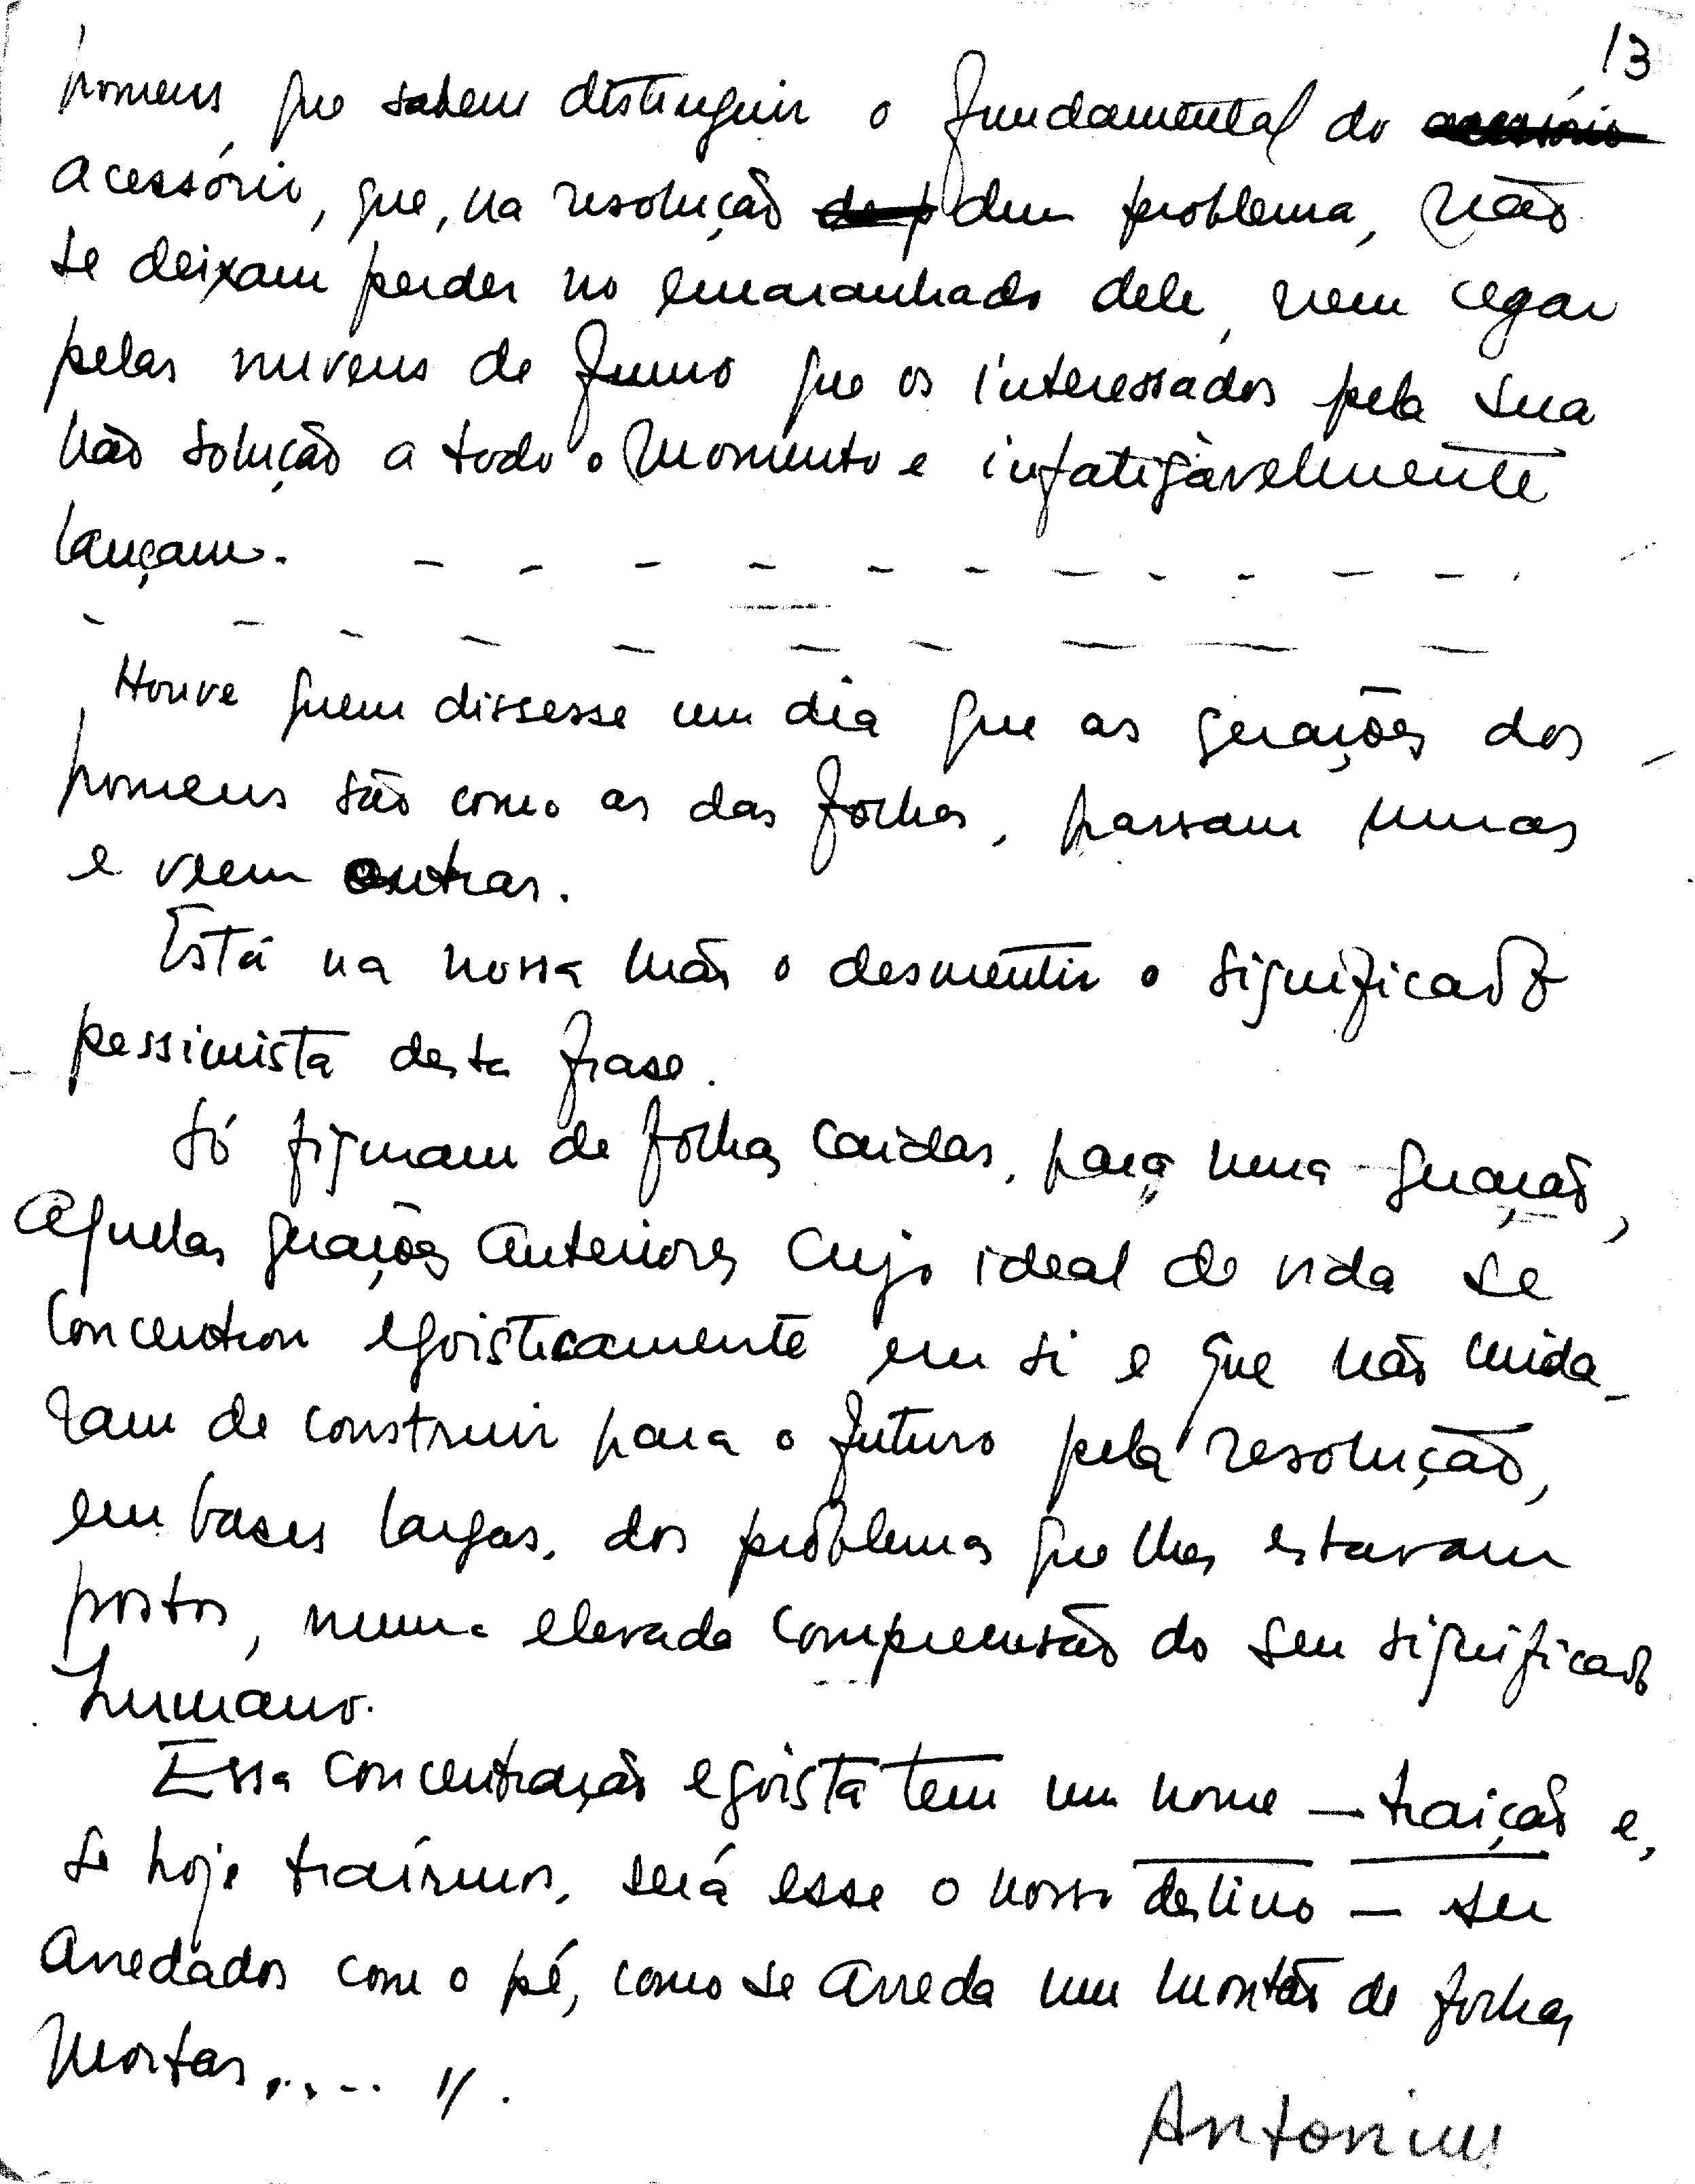 13
homens que sabem distinguir o fundamental do acessório
acessório, que, na resolução de p dum problema, não
se deixam perder no emaranhado dele, nem cegar
pelas nuvens de fumo que os interessados pela sua
não solução a todo o momento e infatigàvelmente
lançam. - - - - - - - - - - -
- - - - - - - - - -
Houve quem dissesse um dia que as gerações dos
homens são como as das folhas, passam umas
e veem outras.
Está na nossa mão o desmentir o significado
pessimista desta frase.
Só figuram de folhas caidas, para uma geração,
aquelas gerações anteriores cujo ideal de vida se
concentrou egoisticamente em si e que não cuida-
ram de construir para o futuro pela resolução,
em bases largas, dos problemas que lhes estavam
postos, numa elevada compreensão do seu significado
humano.
Essa concentração egoista tem um nome — traição e,
se hoje traírmos, será esse o nosso destino — ser
arredados com o pé, como se arreda um montão de folhas
mortas..... //.
Antonius